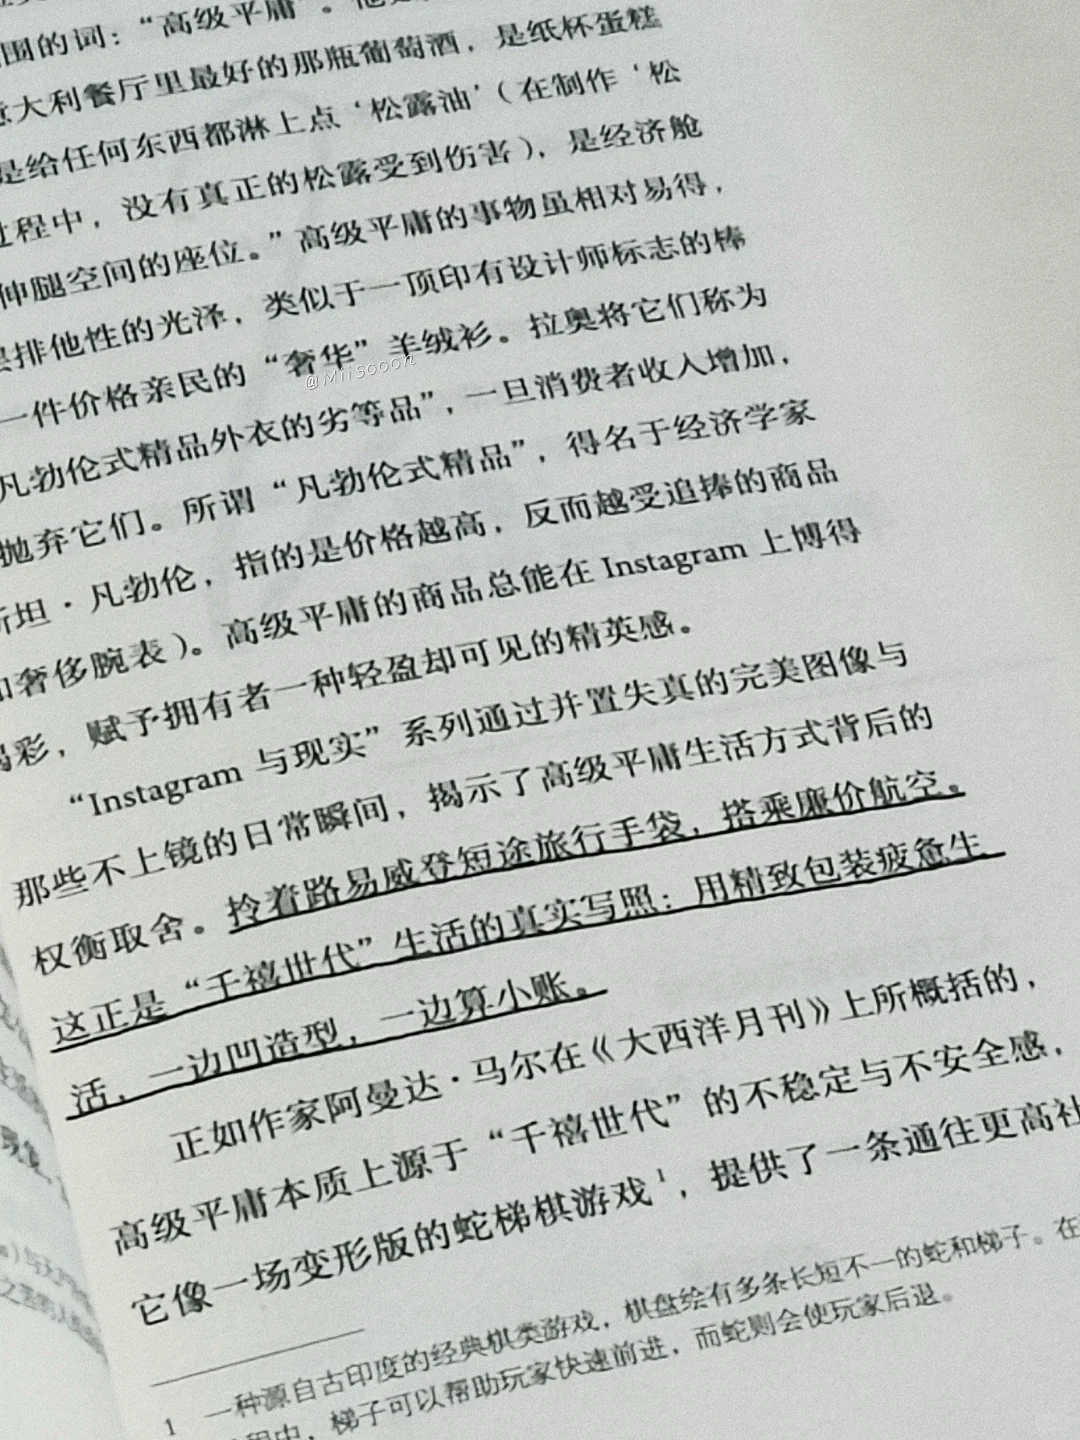 围的词：“高级平庸”。他
大利餐厅里最好的那瓶葡萄酒，是纸杯蛋糕
是给任何东西都淋上点‘松露油’（在制作‘松
过程中，没有真正的松露受到伤害），是经济舱
伸腿空间的座位。”高级平庸的事物虽相对易得，
排他性的光泽，类似于一顶印有设计师标志的棒
一件价格亲民的“奢华”羊绒衫。拉奥将它们称为
@MiiSooon
凡勃伦式精品外衣的劣等品”，一旦消费者收入增加，
抛弃它们。所谓“凡勃伦式精品”，得名于经济学家
斯坦·凡勃伦，指的是价格越高，反而越受追捧的商品
奢侈腕表）。高级平庸的商品总能在 Instagram 上博得
彩，赋予拥有者一种轻盈却可见的精英感。
“Instagram 与现实”系列通过并置失真的完美图像与
那些不上镜的日常瞬间，揭示了高级平庸生活方式背后的
权衡取舍。拎着路易威登短途旅行手袋，搭乘廉价航空。
这正是“千禧世代”生活的真实写照：用精致包装疲惫生
活，一边凹造型，一边算小账。
正如作家阿曼达·马尔在《大西洋月刊》上所概括的，
高级平庸本质上源于“千禧世代”的不稳定与不安全感，
它像一场变形版的蛇梯棋游戏1，提供了一条通往更高社
1 一种源自古印度的经典棋类游戏，棋盘绘有多条长短不一的蛇和梯子。在
程中，梯子可以帮助玩家快速前进，而蛇则会使玩家后退。